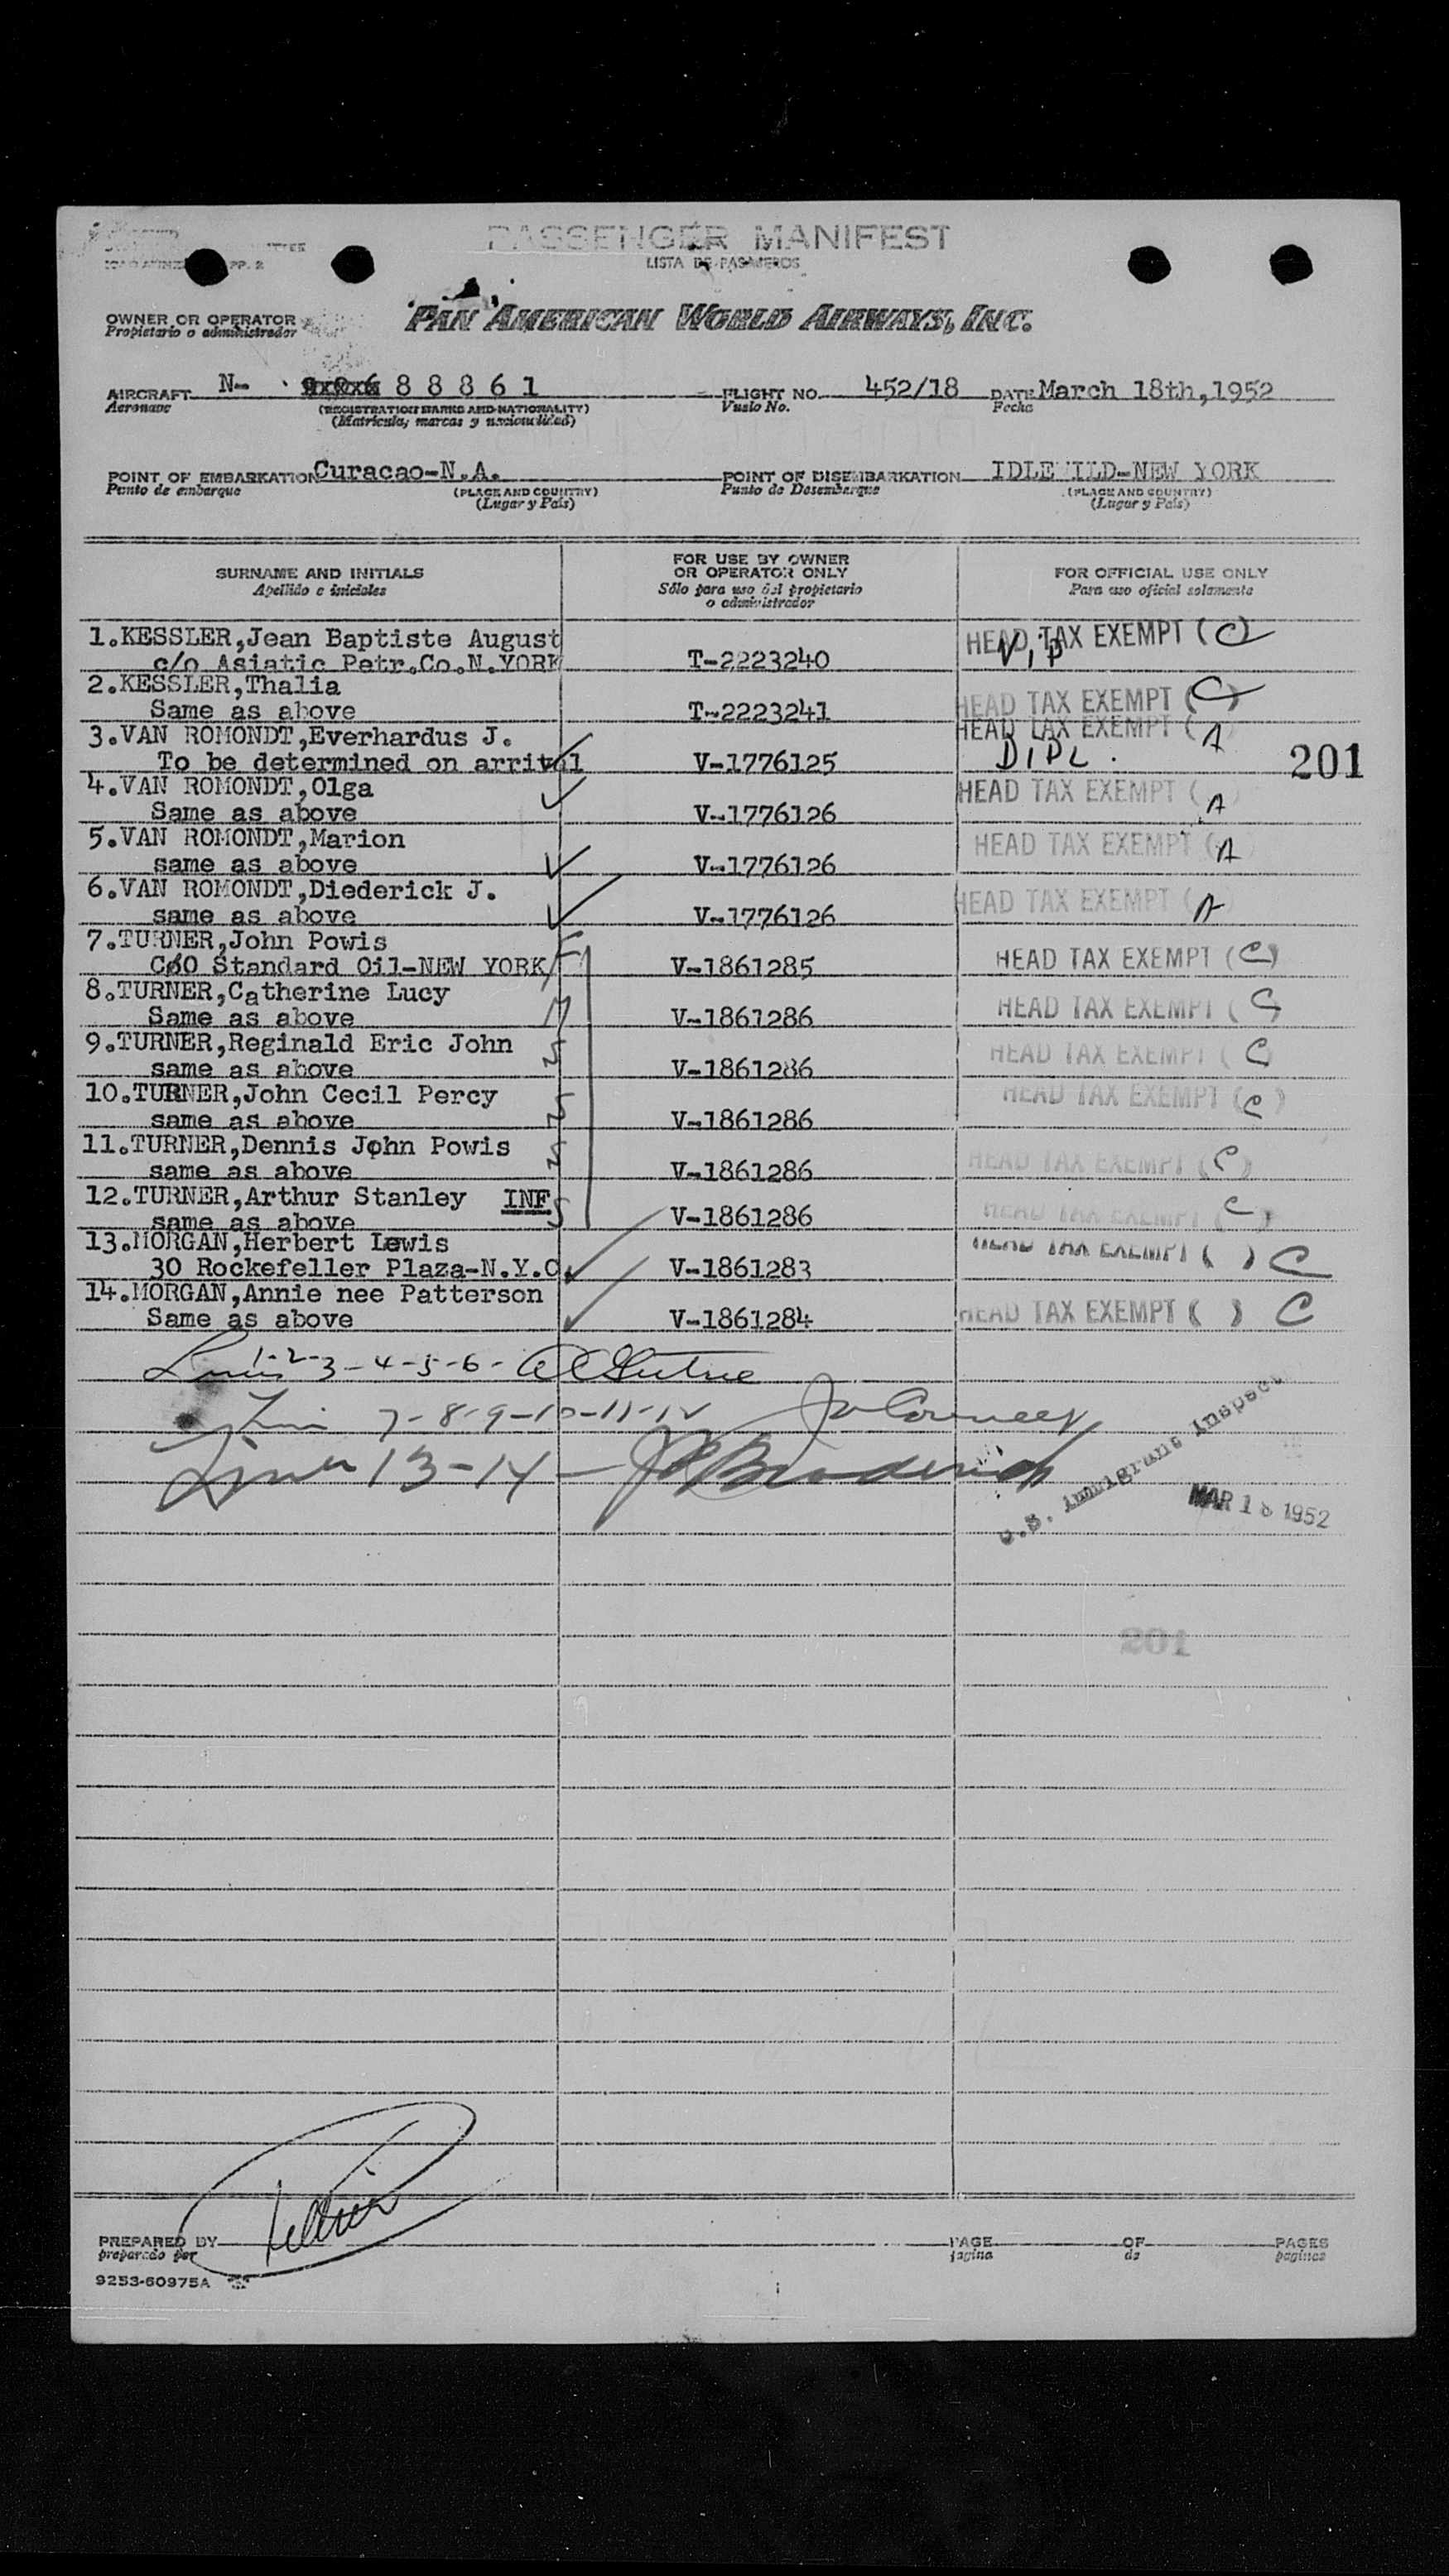 PASSENGER MANIFEST
LISTA DE PASAJEROS
OWNER OR OPERATOR
Propietario o administrador
PAN AMERICAN WORLD AIRWAYS, INC.
AIRCRAFT N- 88861 FLIGHT NO. 452/18 DATE March 18th,1952
Aeronave (REGISTRATION MARKS AND NATIONALITY) Vuelo No. Fecha
(Matricula, marcas y nacionalidad)
POINT OF EMBARKATION Curacao-N.A. POINT OF DISEMBARKATION IDLEWILD-NEW YORK
Punto de embarque (PLACE AND COUNTRY) Punto de Desembarque (PLACE AND COUNTRY)
(Lugar y País) (Lugar y País)
SURNAME AND INITIALS FOR USE BY OWNER OR OPERATOR ONLY FOR OFFICIAL USE ONLY
Apellido e iniciales Sólo para uso del propietario o administrador Para uso oficial solamente
1.KESSLER,Jean Baptiste August HEAD TAX EXEMPT (C)
c/o Asiatic Petr.Co.N.YORK T-2223240 V.I.P
2.KESSLER,Thalia HEAD TAX EXEMPT (C)
Same as above T-2223241
3.VAN ROMONDT,Everhardus J. HEAD TAX EXEMPT ( A
To be determined on arrival V-1776125 DIPL. 201
4.VAN ROMONDT,Olga HEAD TAX EXEMPT ( A )
Same as above V-1776126
5.VAN ROMONDT,Marion HEAD TAX EXEMPT (A)
same as above V-1776126
6.VAN ROMONDT,Diederick J. HEAD TAX EXEMPT (A)
same as above V-1776126
7.TURNER,John Powis F
C/O Standard Oil-NEW YORK V-1861285 HEAD TAX EXEMPT (C)
8.TURNER,Catherine Lucy M HEAD TAX EXEMPT (C
Same as above V-1861286
9.TURNER,Reginald Eric John S HEAD TAX EXEMPT (C
same as above V-1861286
10.TURNER,John Cecil Percy S HEAD TAX EXEMPT (C)
same as above V-1861286
11.TURNER,Dennis John Powis S HEAD TAX EXEMPT (C)
same as above V-1861286
12.TURNER,Arthur Stanley INF S HEAD TAX EXEMPT (C)
same as above V-1861286
13.MORGAN,Herbert Lewis HEAD TAX EXEMPT ( ) C
30 Rockefeller Plaza-N.Y.C. V-1861283
14.MORGAN,Annie nee Patterson HEAD TAX EXEMPT ( ) C
Same as above V-1861284
1-2-3-4-5-6-
7-8-9-10-11-12
13-14 -
U.S. Immigrant Inspector
MAR 18 1952
201
PREPARED BY PAGE OF PAGES
preparado por página de páginas
9253-60975A